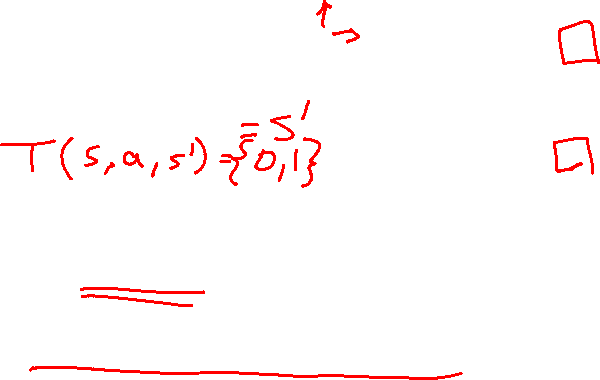 = s'
T(s,a,s') = {0,1}